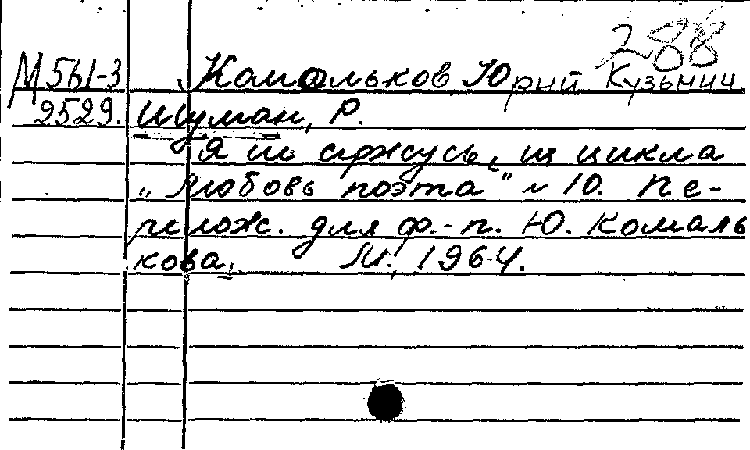 288
М 561-3 Комальков Юрий Кузьмич
2529. Шуман, Р.
Я не сержусь, из цикла
„Любовь поэта" ч 10. Пе-
релож. для ф.-п. Ю. Комаль
кова. М., 1964.